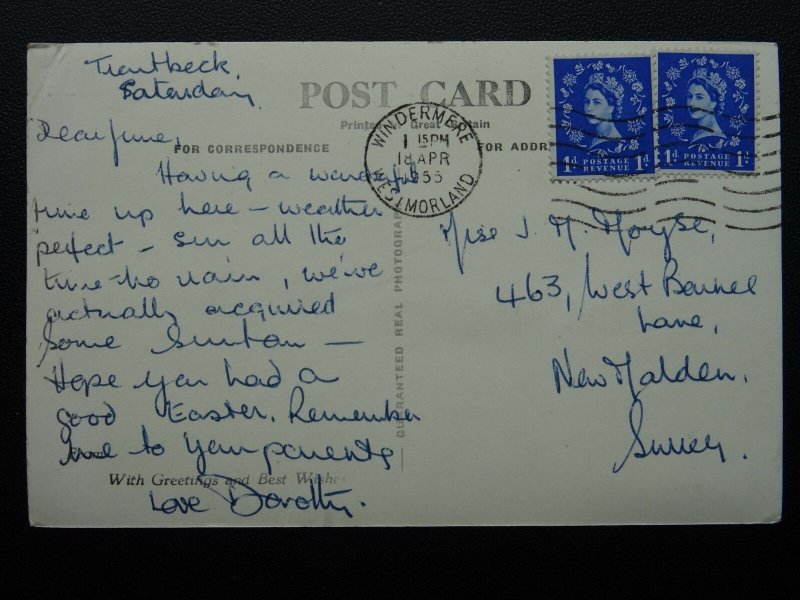 Troutbeck,
Saturday.
POST CARD
Printed in Great Britain
FOR CORRESPONDENCE
FOR ADDR
WINDERMERE
1 15PM
18 APR
1955
WESTMORLAND
1d POSTAGE REVENUE 1d
1d POSTAGE REVENUE 1d
Dear June,
Having a wonderful
time up here – weather
perfect – sun all the
time – no rain, we've
actually acquired
some suntan —
Hope you had a
good Easter. Remember
me to your parents
With Greetings and Best Wishes
Love Dorothy.
GUARANTEED REAL PHOTOGRAPH
Miss J. M. Moyse,
463, West Barnes
Lane,
New Malden.
Surrey.